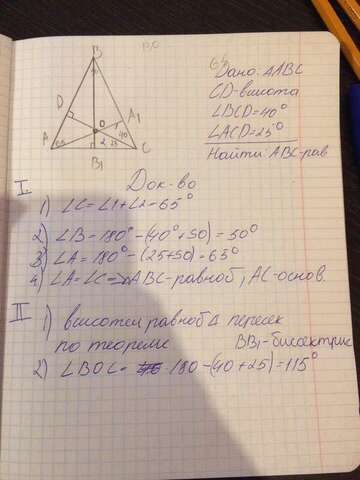 B
D
O
A₁
40
A
65
2
25
C
B₁
Дано: ΔABC
CD-висота
∠BCD=40°
∠ACD=25°
Найти: ABC-рав
Док-во
I
1) ∠C=∠1+∠2=65°
2) ∠B=180°-(40°+90)=50°
3) ∠A=180°-(25+90)=65°
4) ∠A=∠C=>ABC-равноб, AC-основ.
II
1) висоти равноб Δ пересек
по теореме BB₁-биссектрис
2) ∠BOC= 180-(40+25)=115°